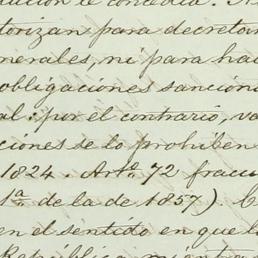 torizan para decretar
nerales, ni para hac
obligaciones sancion
al: por el contrario, va
ciones se lo prohiben
1824. Artº 72 fracci
1ª de la de 1857). C
en el sentido en que l
República